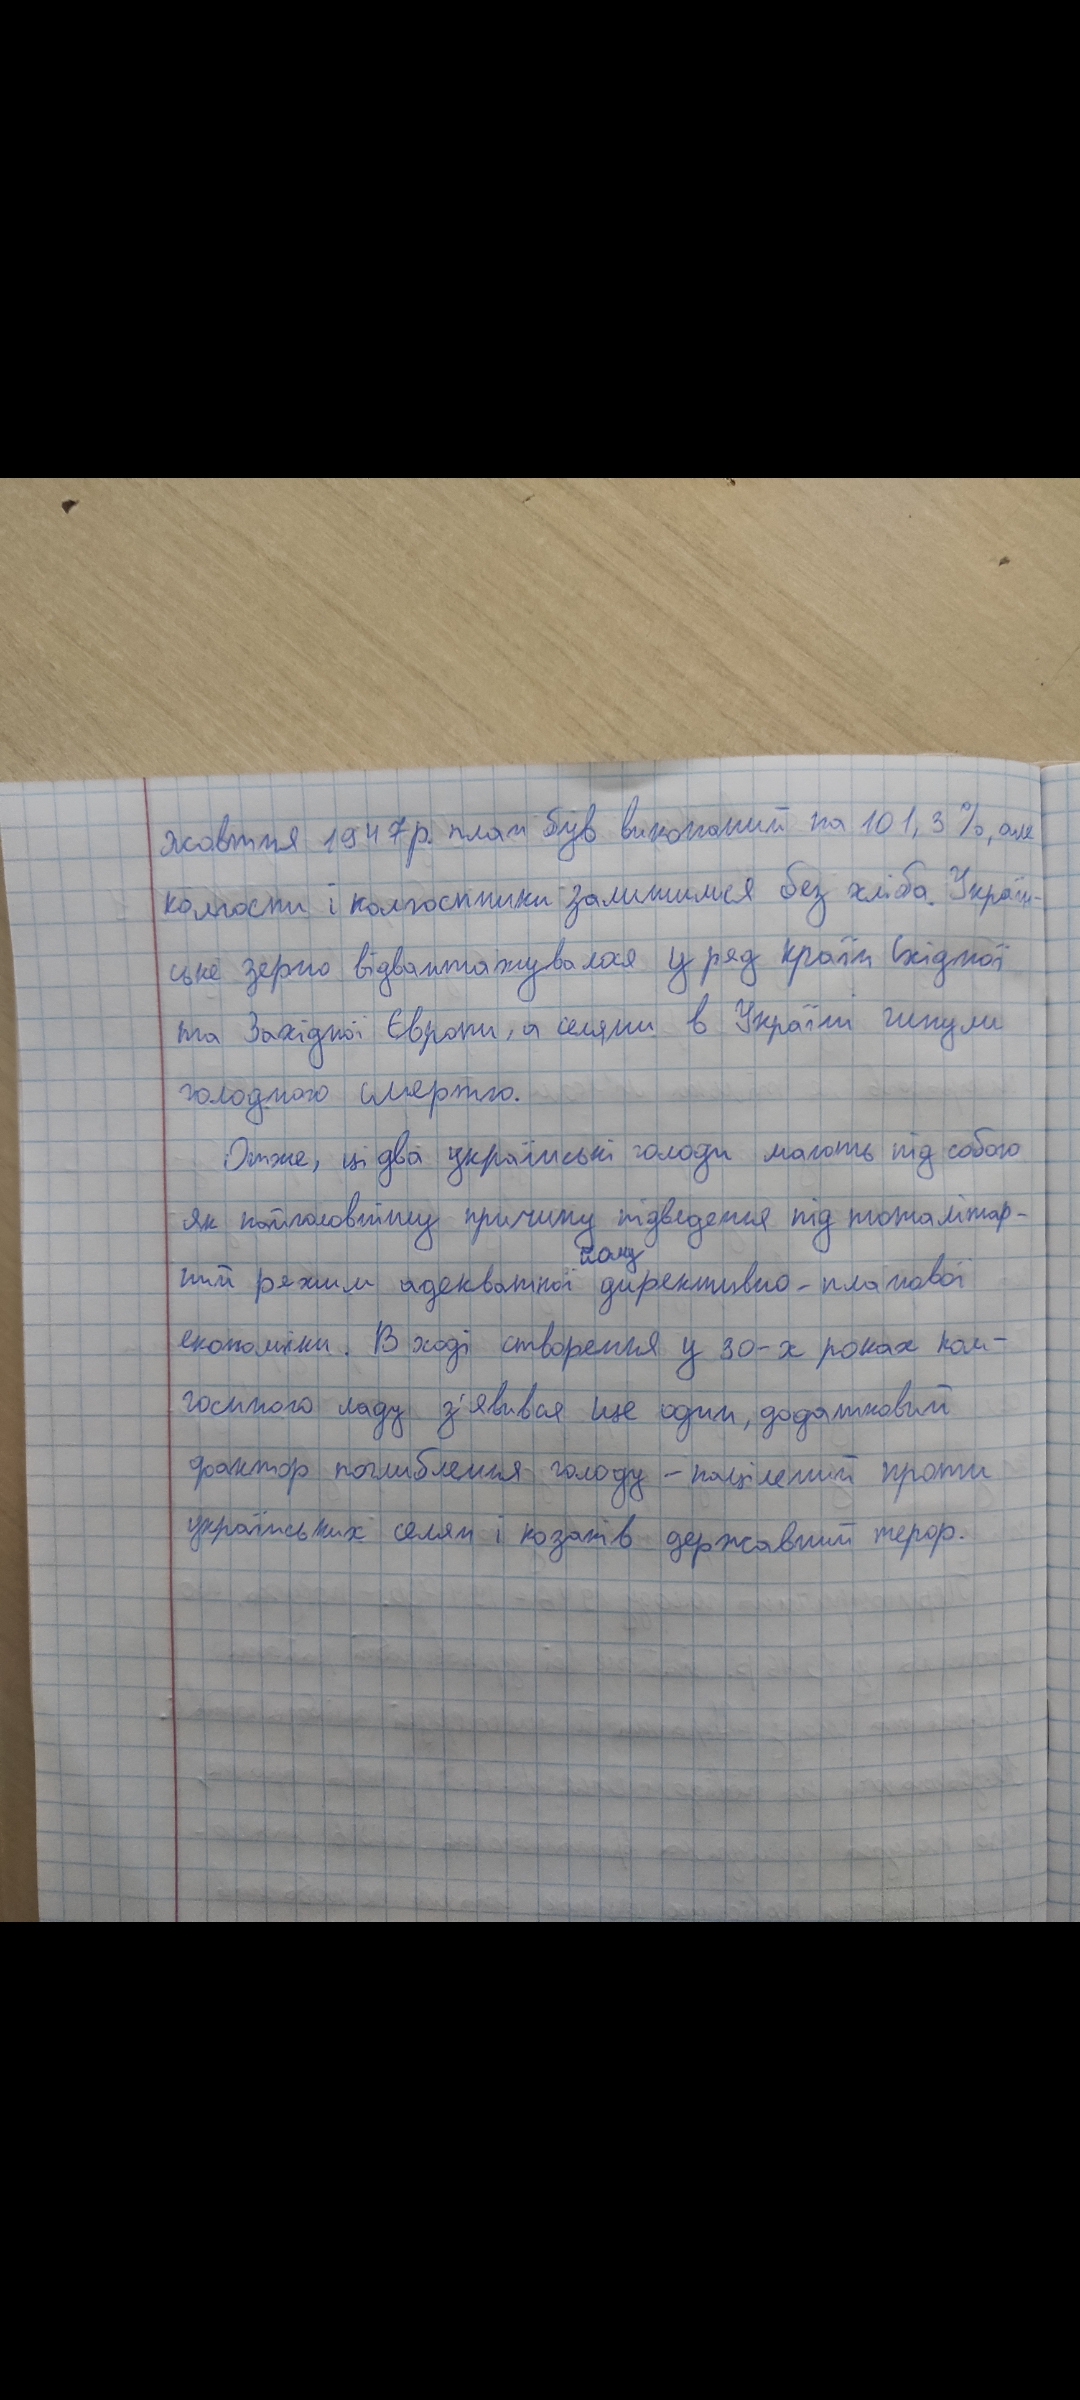 жовтня 1947р. план був виконаний на 101,3%, але
колгоспи і колгоспники залишилися без хліба. Україн-
ське зерно відвантажувалося у ряд країн Східної
та Західної Європи, а селяни в Україні гинули
голодною смертю.
Отже, ці два українські голоди мають під собою
як найголовнішу причину підведення під тоталітар-
ний режим адекватної йому директивно-планової
економіки. В ході створення у 30-х роках кол-
госпного ладу з'явився ще один, додатковий
фактор поглиблення голоду - націлений проти
українських селян і козаків державний терор.